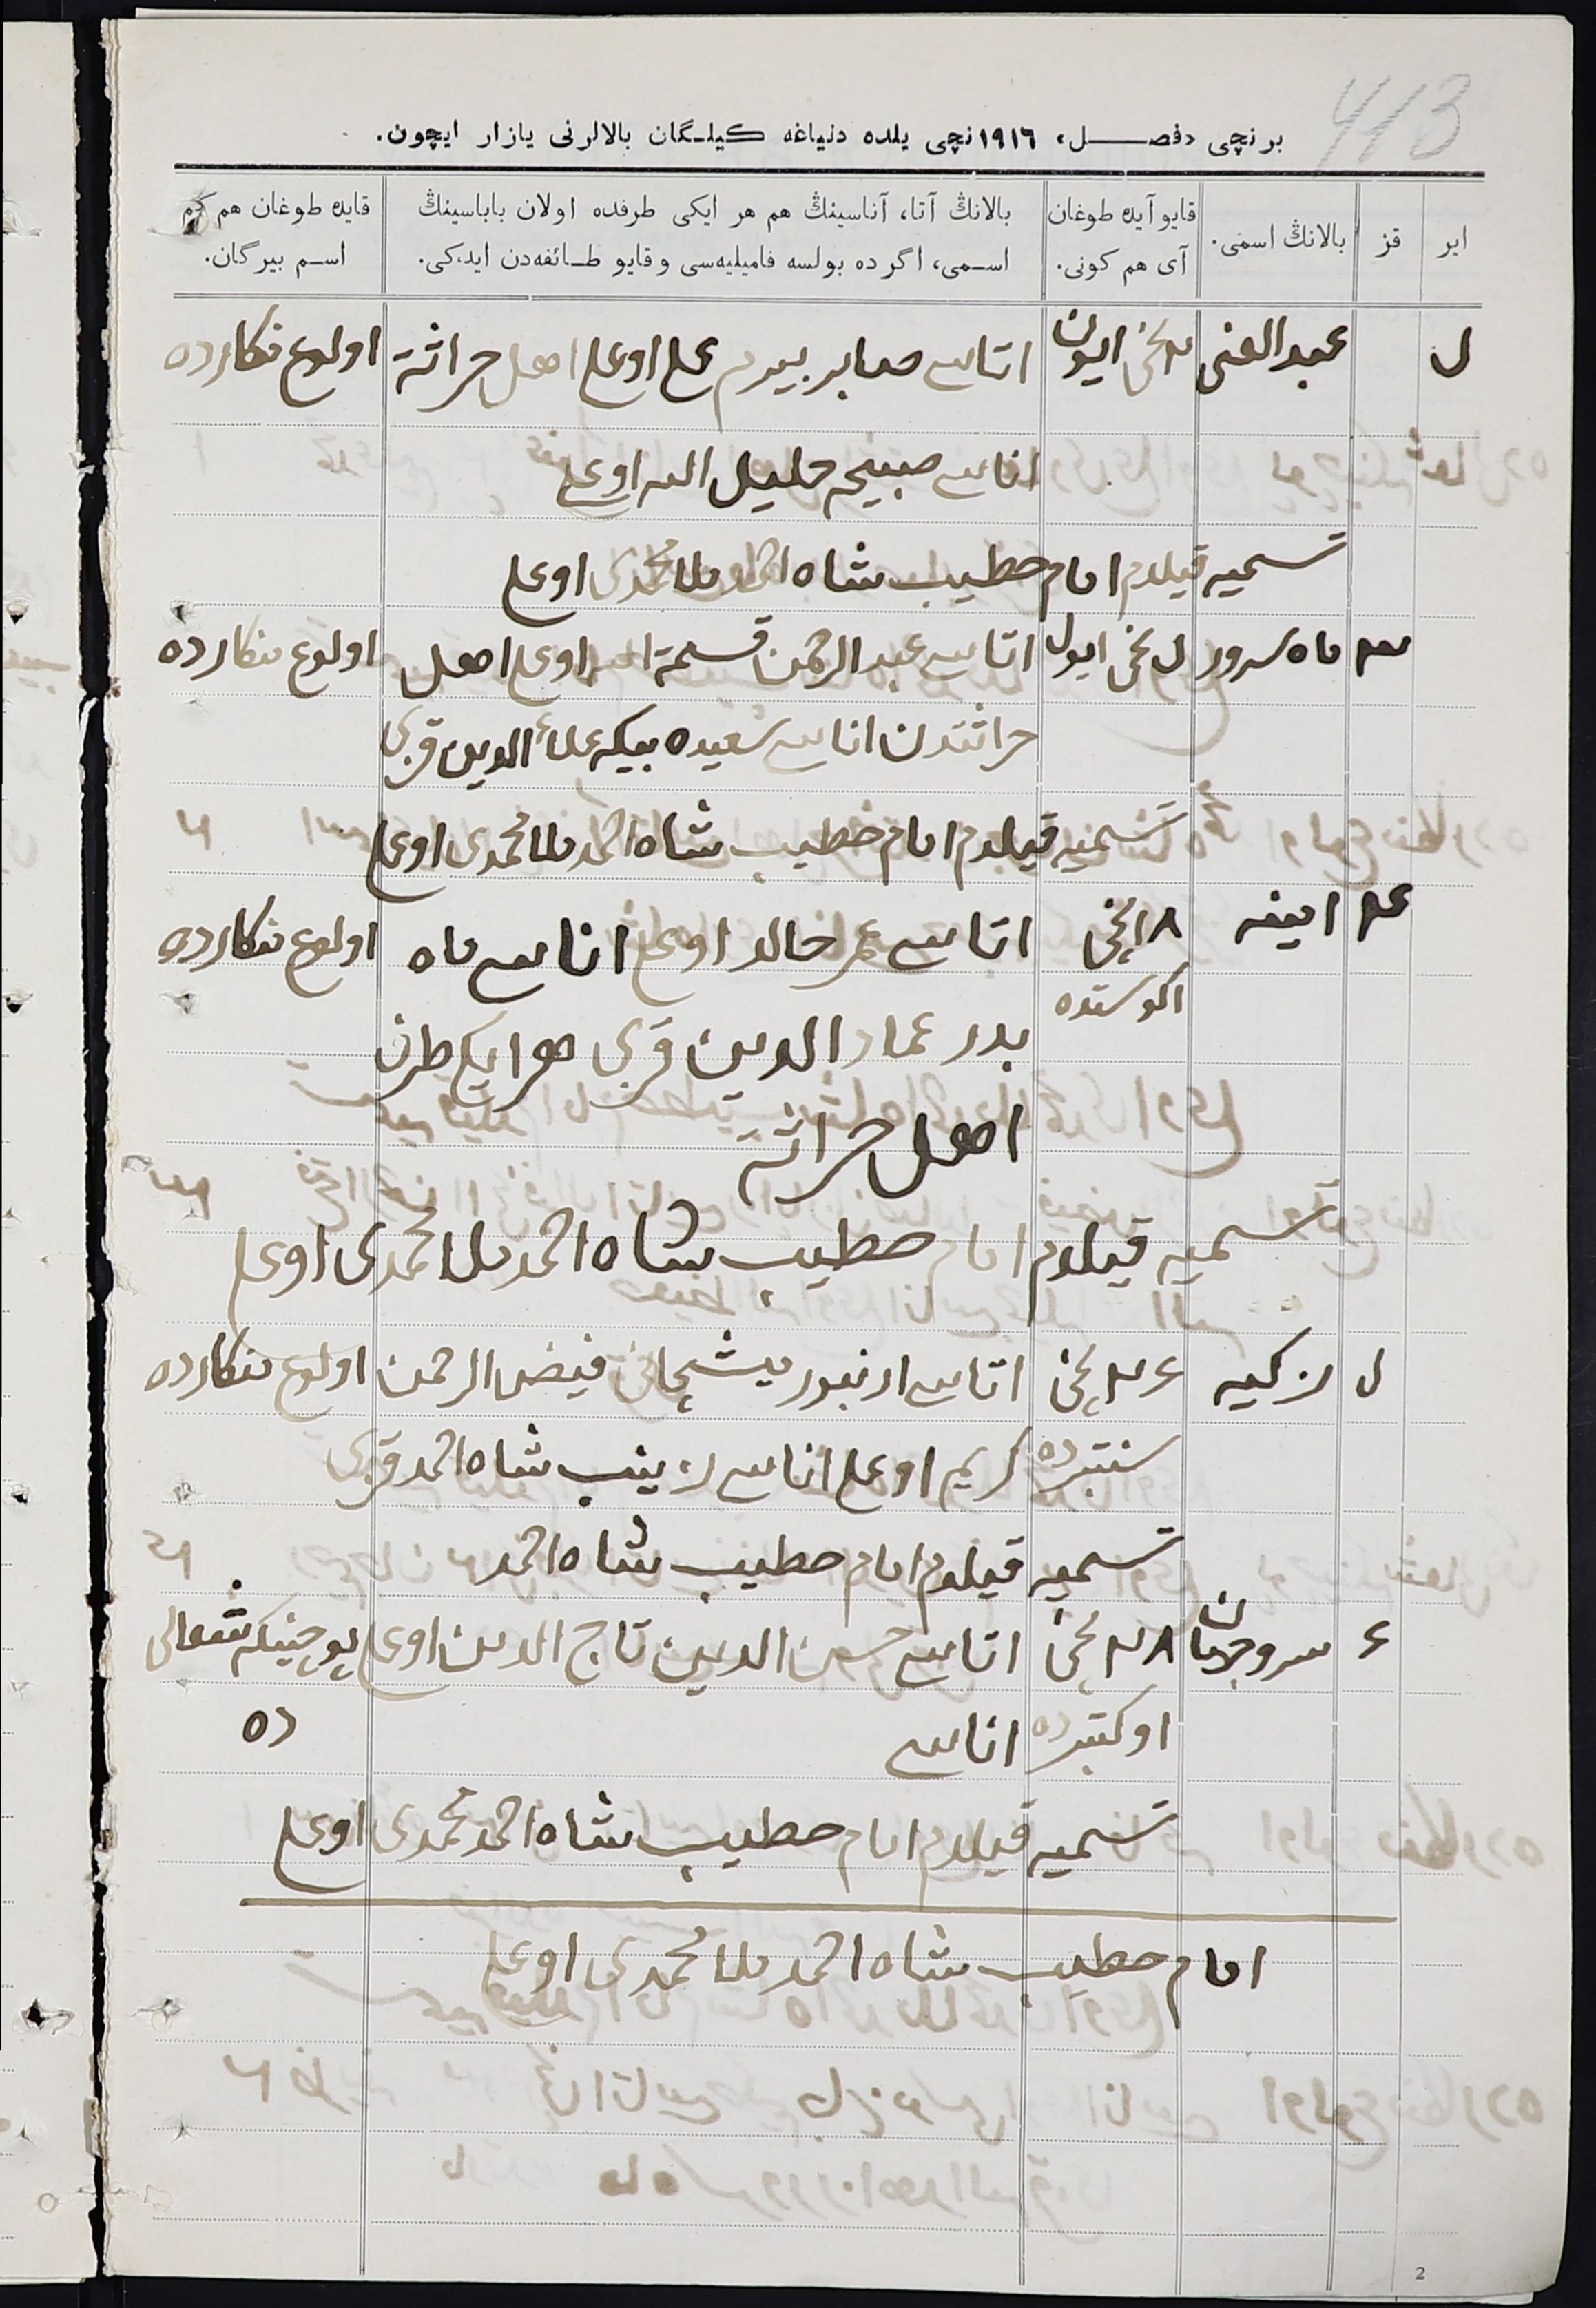 413
برنچی «فصل» ١٩١٦نچی یلده دنیاغه کیلگان بالالرنی یازار ایچون.
ایر
قز
بالانڭ اسمی.
قایو آیده طوغان آی هم کونی.
بالانڭ آتا، آناسینڭ هم هر ایکی طرفده اولان باباسینڭ
اسمی، اگرده بولسه فامیلیه‌سی و قایو طائفه‌دن ایدکی.
قایده طوغان هم کم
اسم بیرگان.
عبدالغنی نچی ایون اتاسی صابر بیرم علی اوغلی اهل حراثة اولوغ نکارده
اناسی صبیحه خلیل الله اوغلی
تسمیه قیلدم امام خطیب شاه احمد ملا محمدی اوغلی
ماه سرور نچی ایول اتاسی عبد الرحمن قسمة الله اوغلی اهل اولوغ نکارده
حراثتدن اناسی سعیده بیکه علاء الدین قزی
تسمیه قیلدم امام خطیب شاه احمد ملا محمدی اوغلی
امینه ١٨نچی اتاسی عمر خالد اوغلی اناسی ماه اولوغ نکارده
اکوستده
بدر عماد الدین قزی هر ایکی طرف
اهل حراثة
تسمیه قیلدم امام خطیب شاه احمد ملا محمدی اوغلی
زکیه نچی اتاسی فیض الرحمن اولوغ نکارده
سنتبرده کریم اوغلی اناسی زینب شاه احمد قزی
تسمیه قیلدم امام خطیب شاه احمد
سروجهان نچی اتاسی حسن الدین تاج الدین اوغلی
ده
اوکتبرده اناسی
تسمیه قیلدم امام خطیب شاه احمد محمدی اوغلی
امام خطیب شاه احمد ملا محمدی اوغلی
2